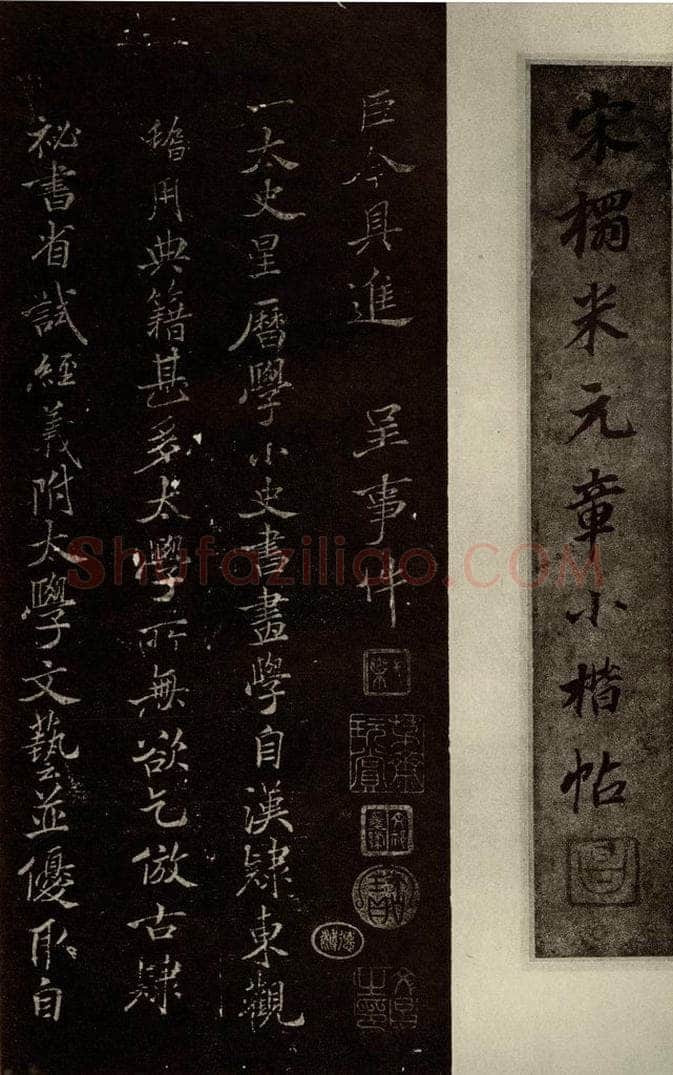 宋榻米元章小楷帖
臣今具進 呈事件
一太史星曆學小史書畫學自漢隸東觀
稽用典籍甚多太學所無欲乞倣古隸
祕書省試經義附太學文藝並優取自
Shufaziliao.COM